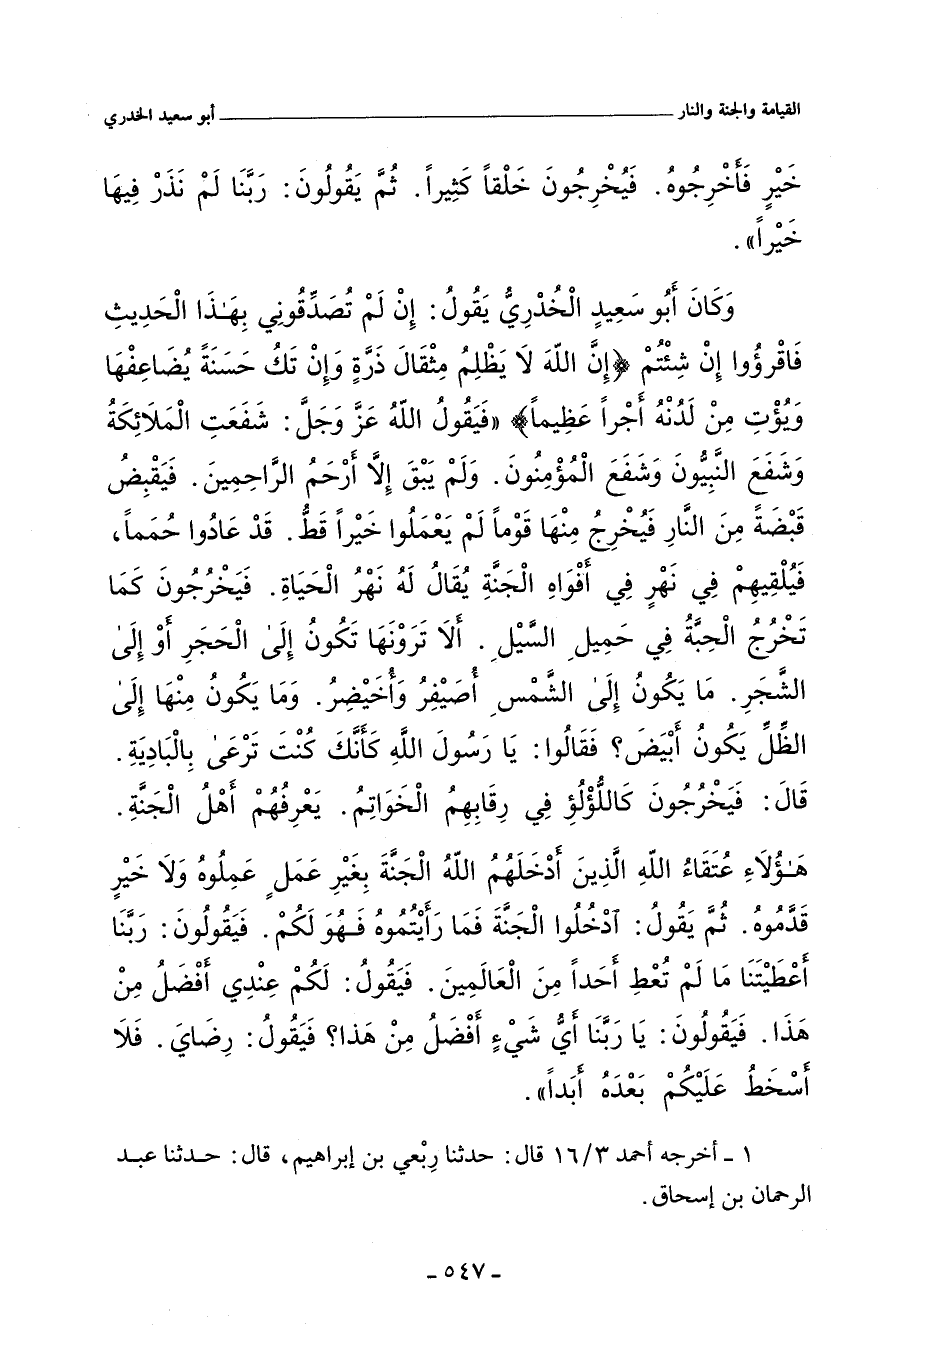 القيامة والجنة والنار ــــــــــ أبو سعيد الخدري
خَيْرٍ فَأَخْرِجُوهُ. فَيُخْرِجُونَ خَلْقاً كَثِيراً. ثُمَّ يَقُولُونَ: رَبَّنَا لَمْ نَذَرْ فِيهَا
خَيْراً».
وَكَانَ أَبُو سَعِيدٍ الْخُدْرِيُّ يَقُولُ: إِنْ لَمْ تُصَدِّقُونِي بِهَـٰذَا الْحَدِيثِ
فَاقْرَؤُوا إِنْ شِئْتُمْ ﴿إِنَّ اللّهَ لَا يَظْلِمُ مِثْقَالَ ذَرَّةٍ وَإِنْ تَكُ حَسَنَةً يُضَاعِفْهَا
وَيُؤْتِ مِنْ لَدُنْهُ أَجْراً عَظِيماً﴾ «فَيَقُولُ اللّهُ عَزَّ وَجَلَّ: شَفَعَتِ الْمَلَائِكَةُ
وَشَفَعَ النَّبِيُّونَ وَشَفَعَ الْمُؤْمِنُونَ. وَلَمْ يَبْقَ إِلَّا أَرْحَمُ الرَّاحِمِينَ. فَيَقْبِضُ
قَبْضَةً مِنَ النَّارِ فَيُخْرِجُ مِنْهَا قَوْماً لَمْ يَعْمَلُوا خَيْراً قَطُّ. قَدْ عَادُوا حُمَماً،
فَيُلْقِيهِمْ فِي نَهْرٍ فِي أَفْوَاهِ الْجَنَّةِ يُقَالُ لَهُ نَهْرُ الْحَيَاةِ. فَيَخْرُجُونَ كَمَا
تَخْرُجُ الْحِبَّةُ فِي حَمِيلِ السَّيْلِ. أَلَا تَرَوْنَهَا تَكُونُ إِلَىٰ الْحَجَرِ أَوْ إِلَىٰ
الشَّجَرِ. مَا يَكُونُ إِلَىٰ الشَّمْسِ أُصَيْفِرُ وَأُخَيْضِرُ. وَمَا يَكُونُ مِنْهَا إِلَىٰ
الظِّلِّ يَكُونُ أَبْيَضَ؟ فَقَالُوا: يَا رَسُولَ اللَّهِ كَأَنَّكَ كُنْتَ تَرْعَىٰ بِالْبَادِيَةِ.
قَالَ: فَيَخْرُجُونَ كَاللُّؤْلُؤِ فِي رِقَابِهِمُ الْخَوَاتِمُ. يَعْرِفُهُمْ أَهْلُ الْجَنَّةِ.
هَـٰؤُلَاءِ عُتَقَاءُ اللّهِ الَّذِينَ أَدْخَلَهُمُ اللّهُ الْجَنَّةَ بِغَيْرِ عَمَلٍ عَمِلُوهُ وَلَا خَيْرٍ
قَدَّمُوهُ. ثُمَّ يَقُولُ: ٱدْخُلُوا الْجَنَّةَ فَمَا رَأَيْتُمُوهُ فَـهُوَ لَكُمْ. فَيَقُولُونَ: رَبَّنَا
أَعْطَيْتَنَا مَا لَمْ تُعْطِ أَحَداً مِنَ الْعَالَمِينَ. فَيَقُولُ: لَكُمْ عِنْدِي أَفْضَلُ مِنْ
هَذَا. فَيَقُولُونَ: يَا رَبَّنَا أَيُّ شَيْءٍ أَفْضَلُ مِنْ هَذا؟ فَيَقُولُ: رِضَايَ. فَلَا
أَسْخَطُ عَلَيْكُمْ بَعْدَهُ أَبَداً».
١ ـ أخرجه أحمد ١٦/٣ قال: حدثنا رِبْعي بن إبراهيم، قال: حـدثنا عبـد
الرحمان بن إسحاق.
ـ ٥٤٧ ـ